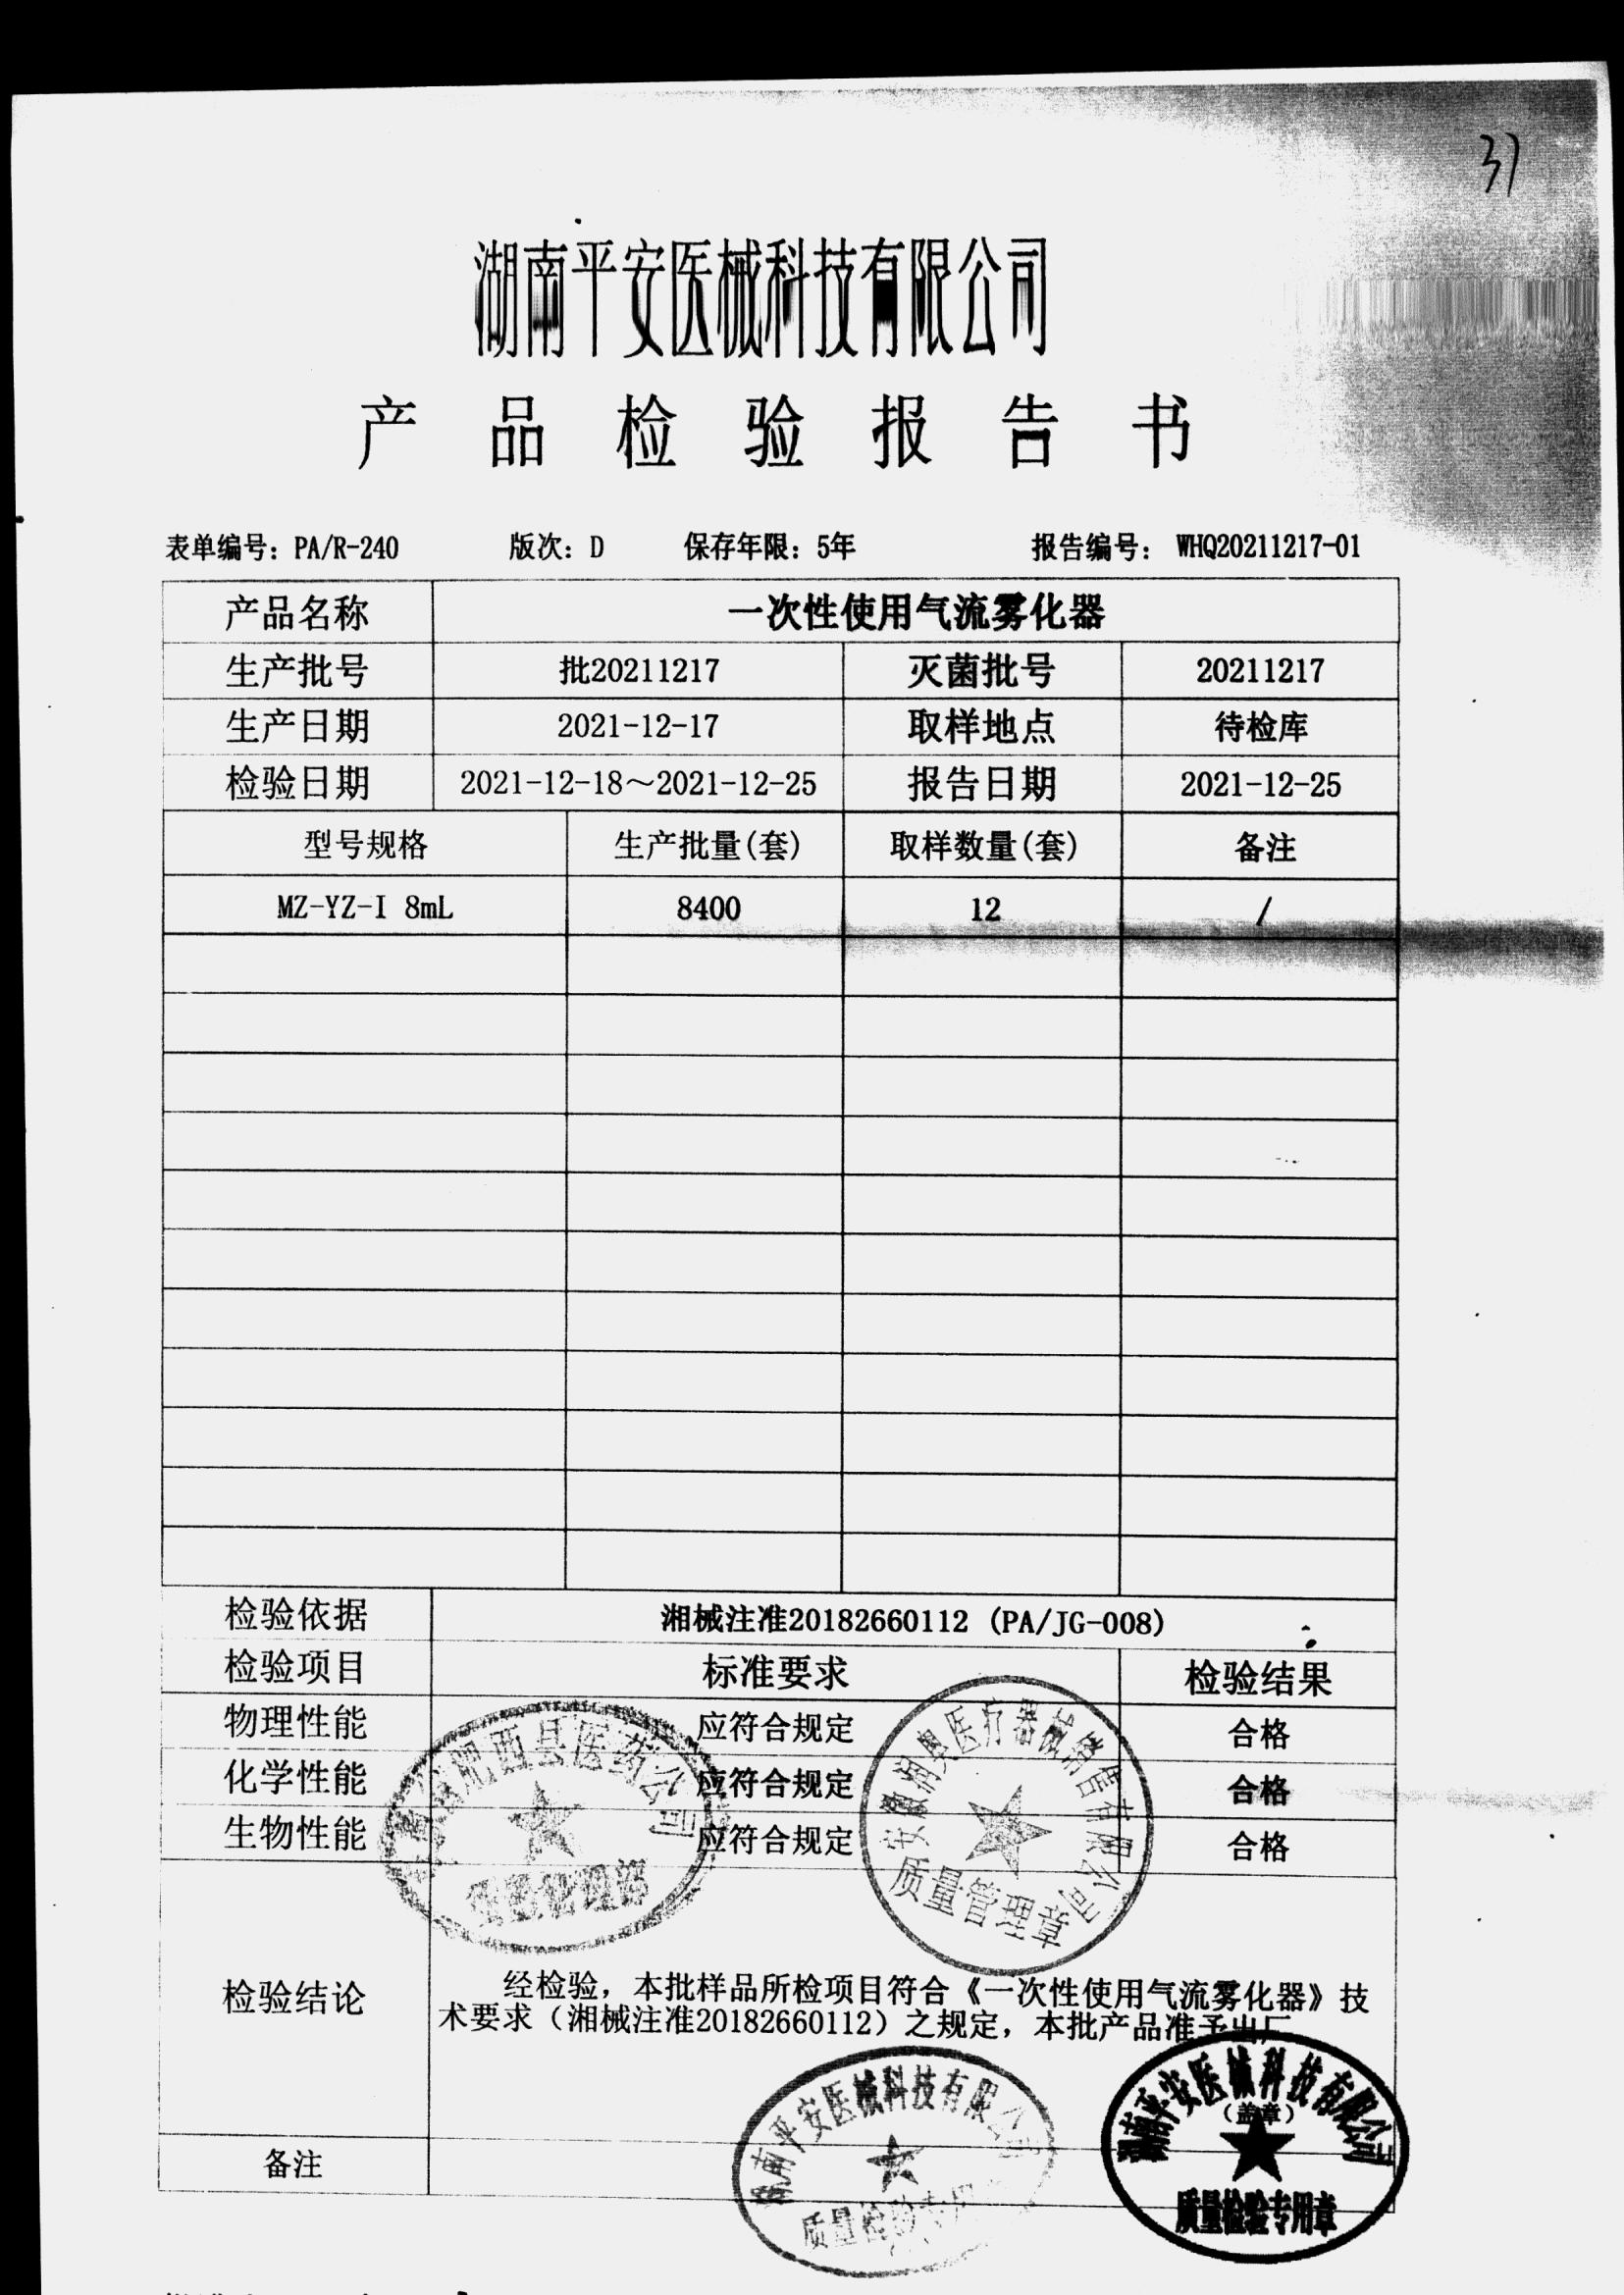 31
湖南平安医械科技有限公司
产品检验报告书
表单编号：PA/R-240 版次：D 保存年限：5年 报告编号： WHQ20211217-01
产品名称 一次性使用气流雾化器
生产批号 批20211217 灭菌批号 20211217
生产日期 2021-12-17 取样地点 待检库
检验日期 2021-12-18～2021-12-25 报告日期 2021-12-25
型号规格 生产批量(套) 取样数量(套) 备注
MZ-YZ-I 8mL 8400 12 /
检验依据 湘械注准20182660112 (PA/JG-008)
检验项目 标准要求 检验结果
物理性能 应符合规定 合格
化学性能 应符合规定 合格
生物性能 应符合规定 合格
肥西县医药公司
安徽润奥医疗器械销售有限公司
质量管理章
检验结论 经检验，本批样品所检项目符合《一次性使用气流雾化器》技
术要求（湘械注准20182660112）之规定，本批产品准予出厂
（盖章）
湖南平安医械科技有限公司
质量检验专用章
湖南平安医械科技有限公司
质量检验专用章
备注